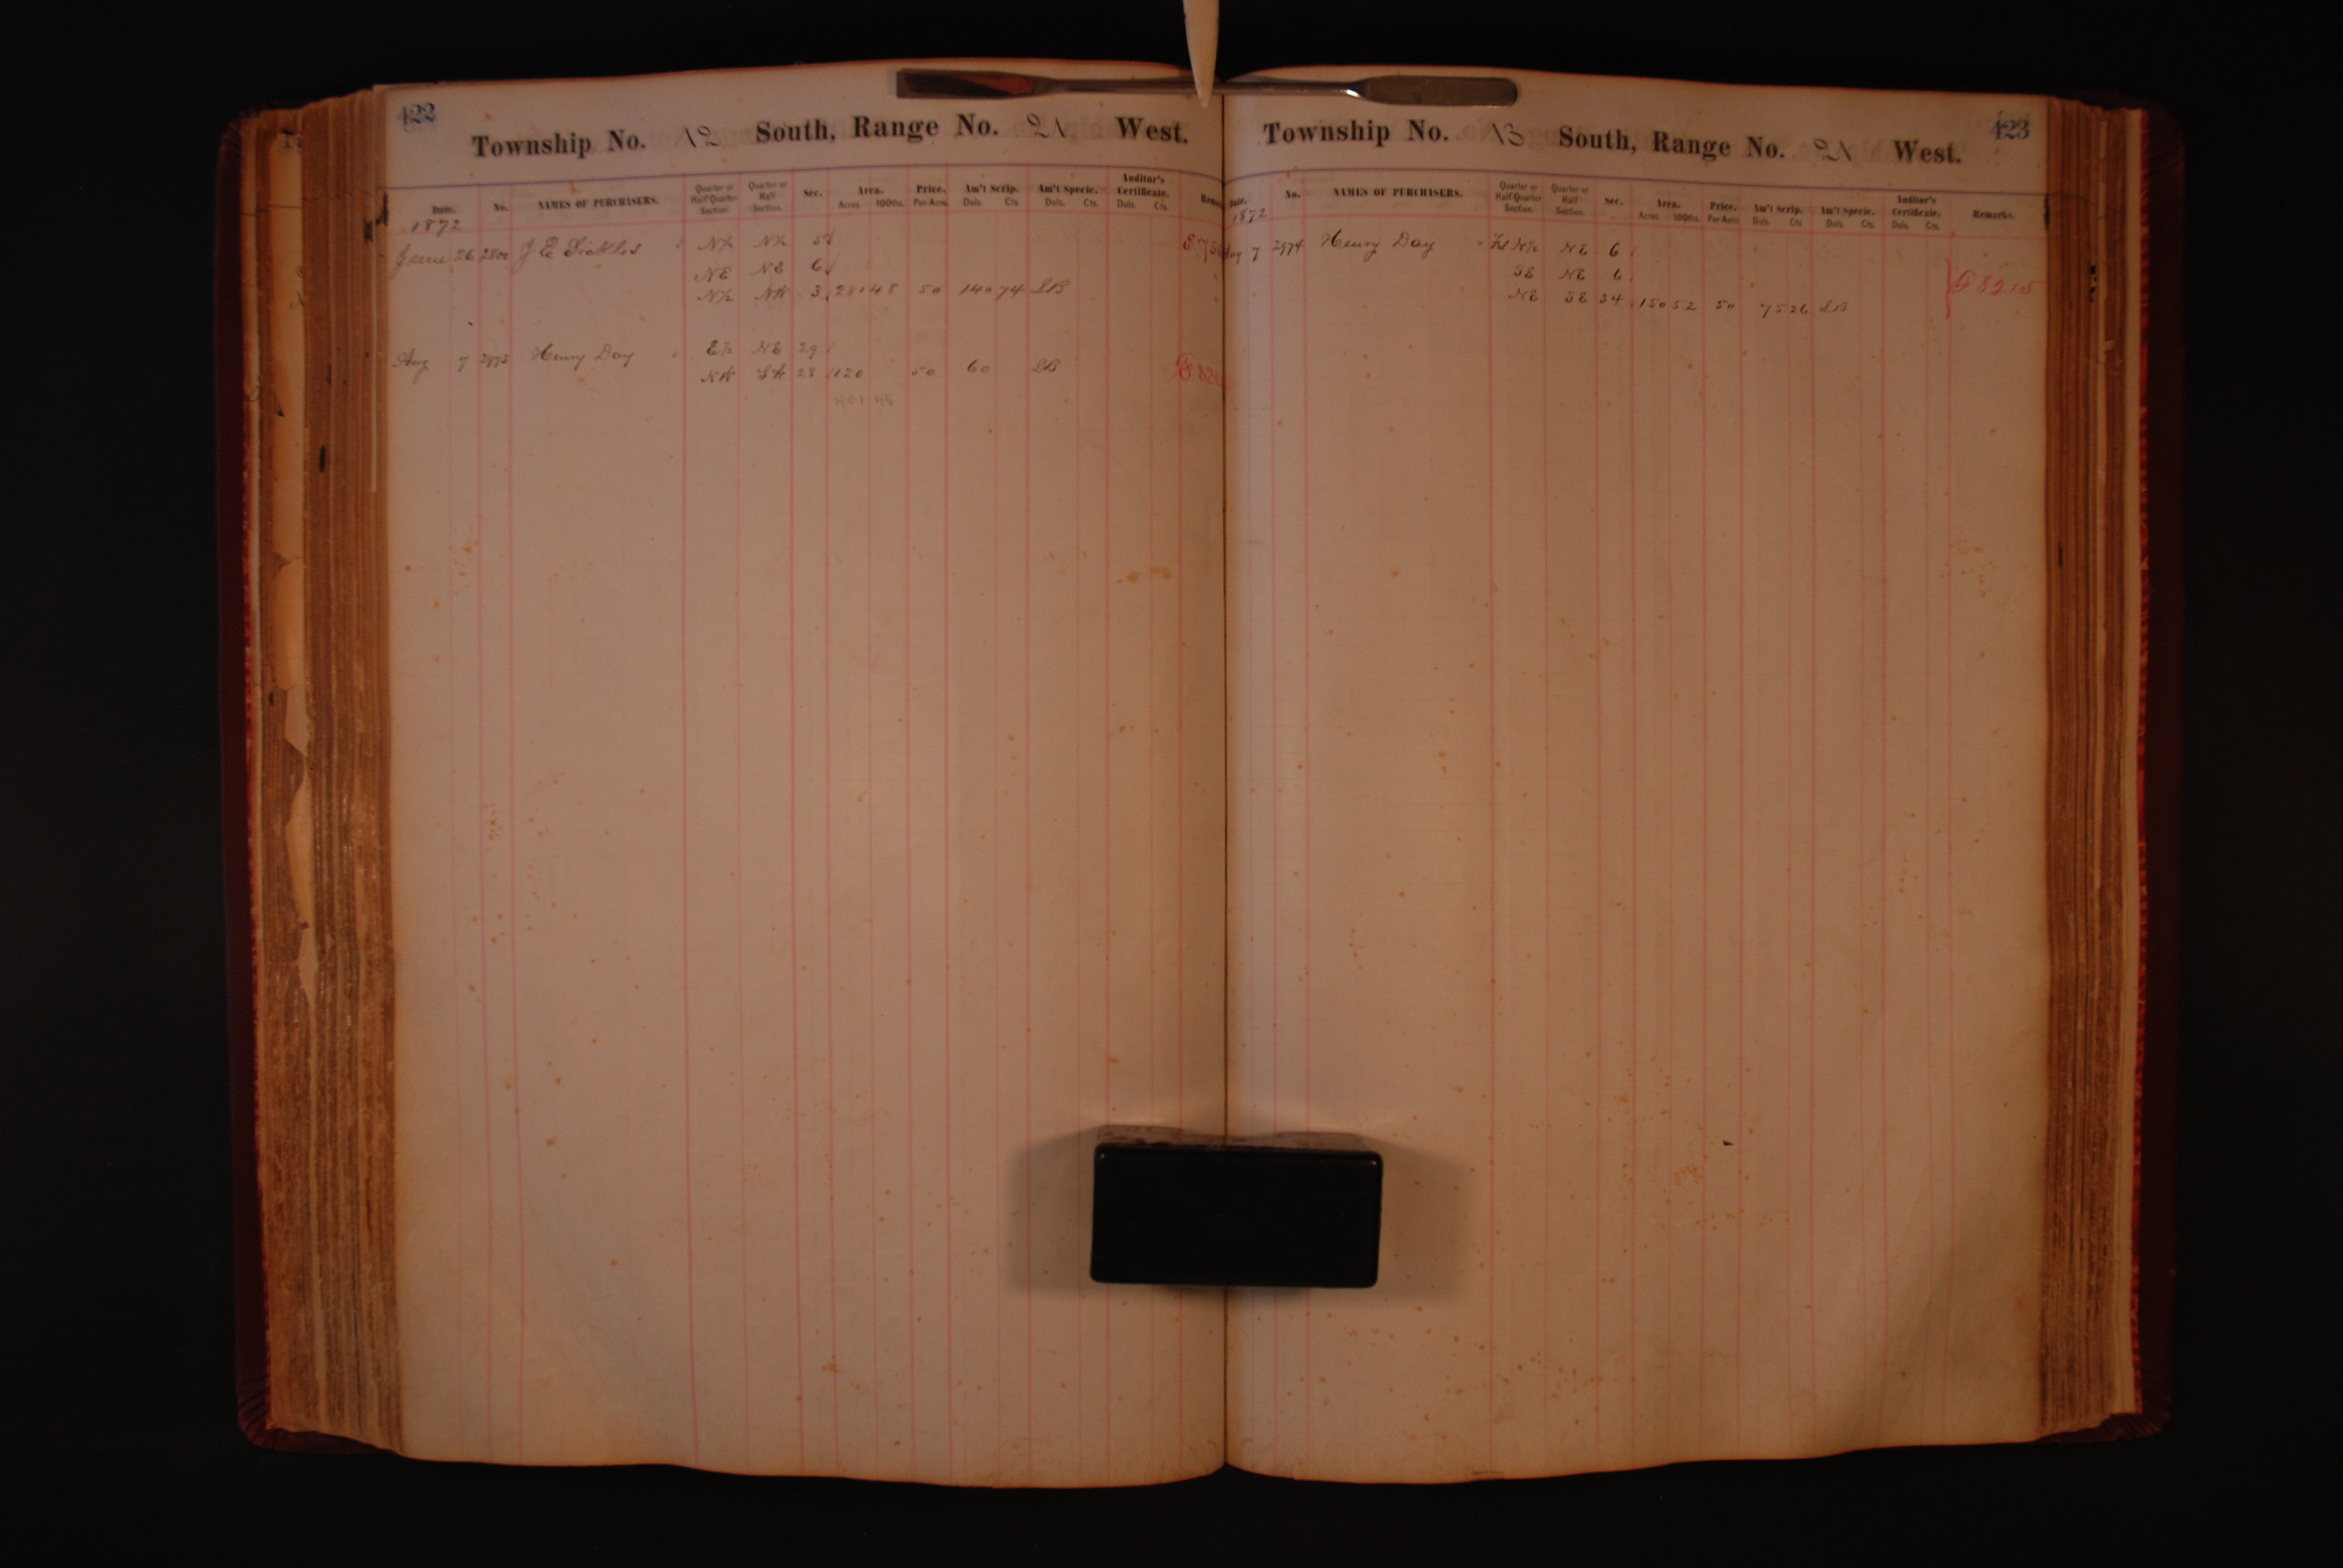 422
Township No. 12 South, Range No. 21 West.
Date. No. NAMES OF PURCHASERS. Quarter or Half Quarter Section. Quarter or Half Section. Sec. Area. Acres 100ths. Price. Per Acre. Am't Scrip. Dols. Cts Am't Specie. Dols. Cts. Auditor's Certificate. Dols. Cts.
1872
June 26 2800 J E N½ N½ 5
NE NE 6
N½ NW 3 281 48 50 140 74 LB
Aug 7 2973 Henry Day E½ NE 29
NW SW 28 120 50 60 LB
401 48
423
Township No. 13 South, Range No. 21 West.
Date. No. NAMES OF PURCHASERS. Quarter or Half Quarter Section. Quarter or Half Section. Sec. Area. Acres 100ths. Price. Per Acre. Am't Scrip. Dols. Cts Am't Specie. Dols. Cts. Auditor's Certificate. Dols. Cts. Remarks.
1872
Aug 7 2974 Henry Day N½ NE 6
SE NE 6
NE SE 34 150 52 50 75 26 LB 8215